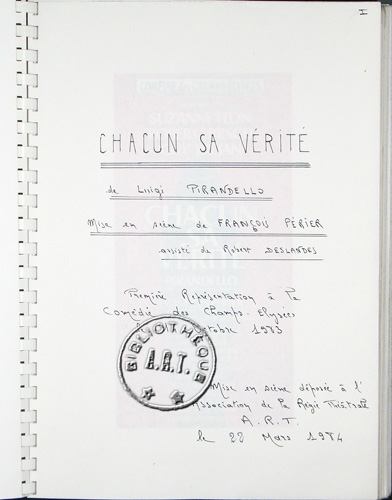 I
CHACUN SA VÉRITÉ
de Luigi PIRANDELLO
Mise en scène de FRANÇOIS PÉRIER
assisté de Robert DESLANDES
Première Représentation à la
Comédie des Champs-Elysées
1983
BIBLIOTHÈQUE
A.R.T.
Mise en scène déposée à l'
Association de la Régie Théâtrale
A.R.T.
le 22 Mars 1984